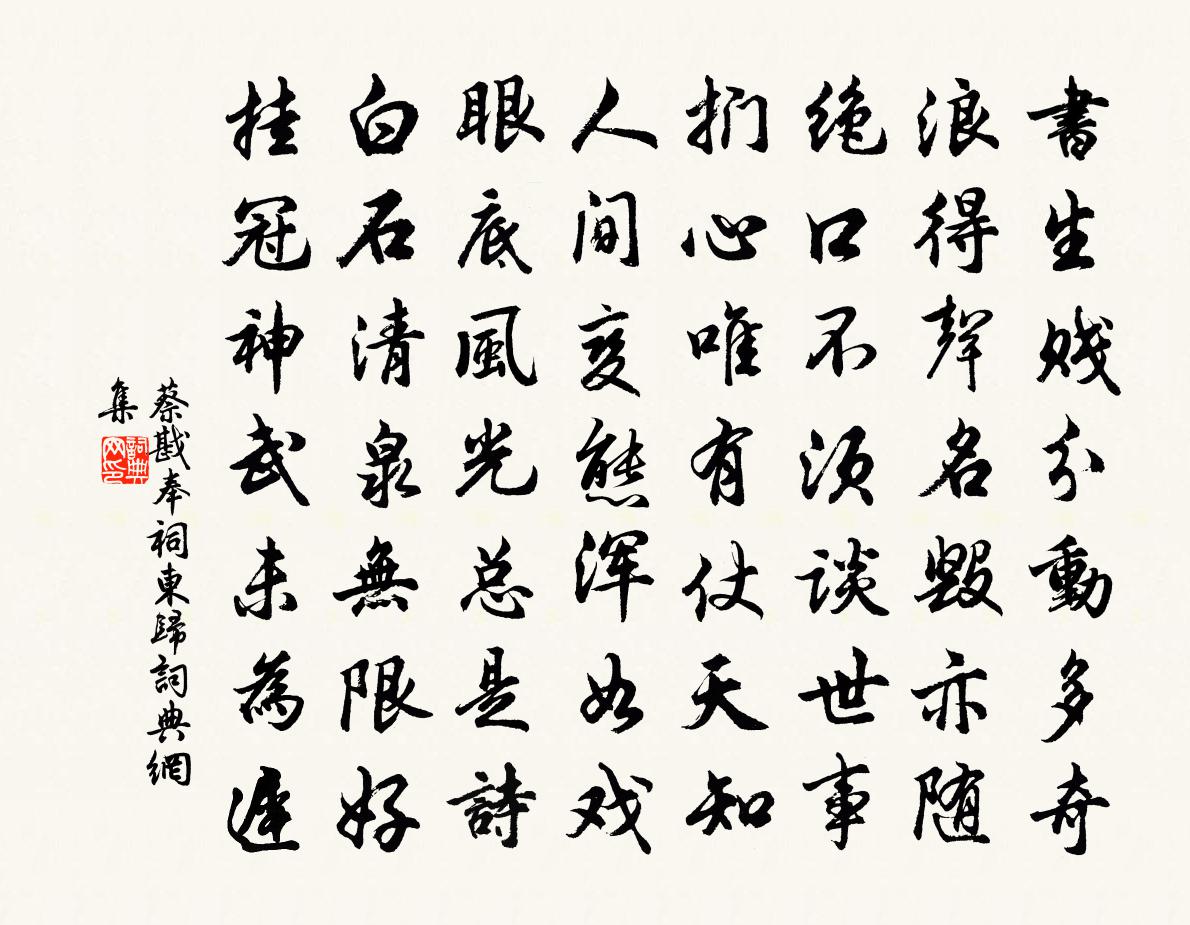 書生賤分動多奇
浪得聲名毀亦随
绝口不须談世事
捫心唯有仗天知
人间变態浑如戏
眼底風光总是詩
白石清泉無限好
挂冠神武未為遲
蔡戡奉祠東歸詞典網
集
詞典網印